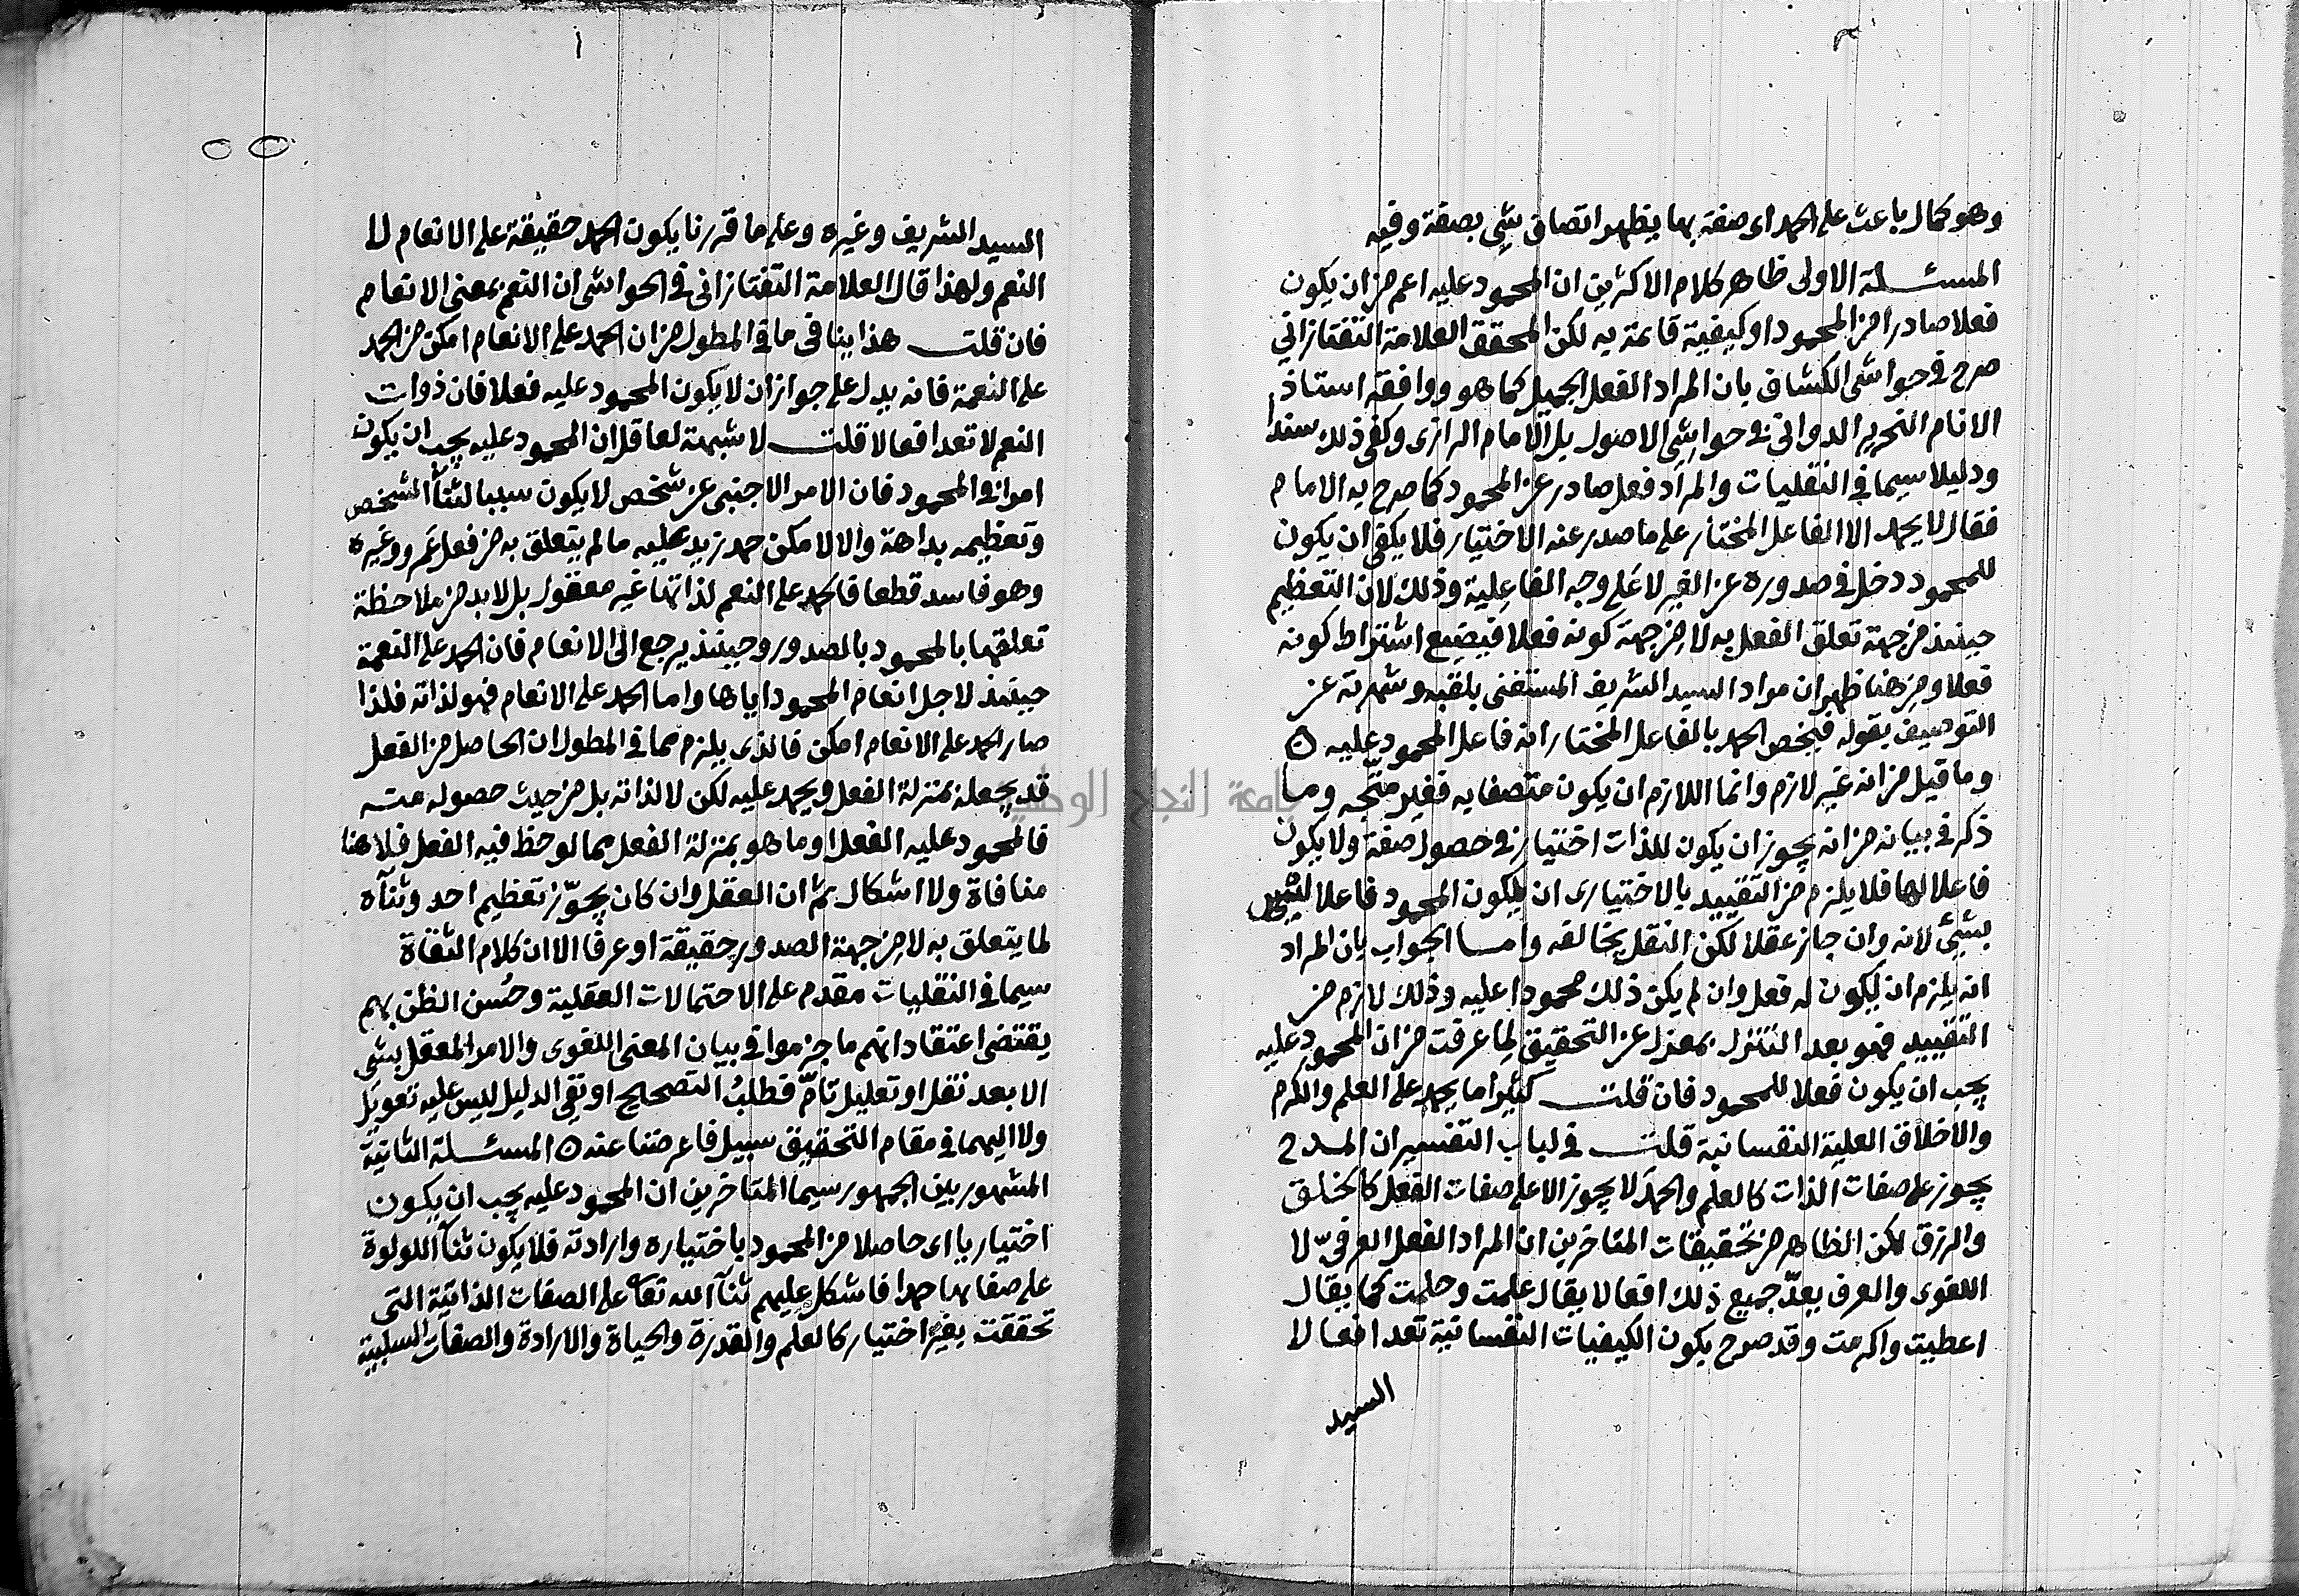 وهو كمال باعث على الحمد اى صفة بها يظهر اتصاف شئ بصفة وفيه
المسئلة الاولى ظاهر كلام الاكثرين ان المحمود عليه اعم من ان يكون
فعلا صادرا من المحمود او كيفية قائمة به لكن المحقق العلامة التفتازانى
صرح فى حواشى الكشاف بان المراد الفعل الجميل كما هو ووافقه استاذ
الانام النحرير الدوانى فى حواشى الاصول بل الامام الرازى وكفى ذلك سندا
ودليلا سيما فى النقليات والمراد فعل صادر عن المحمود كما صرح به الامام
فقال لا يحمد الا الفاعل المختار على ما صدر عنه الاختيار فلا يكفى ان يكون
للمحمود دخل فى صدوره عن الغير لا على وجه الفاعلية وذلك لان التعظيم
حينئذ من جهة تعلق الفعل به لا من جهة كونه فعلا فيضيع اشتراط كونه
فعلا ومن هنا ظهر ان مراد السيد الشريف المستغنى بلقبه وشهرته عن
التوصيف بقوله فيخص الحمد بالفاعل المختار انه فاعل المحمود عليه ه
وما قيل من انه غير لازم وانما اللازم ان يكون متصفا به فغير متّجه وما
ذكر فى بيانه من انه يجوز ان يكون للذات اختيار فى حصول صفة ولا يكون
فاعلا لها فلا يلزم من التقييد بالاختيارى ان يكون المحمود فاعلا
بشئ لانه وان جاز عقلا لكن النقل يخالفه واما الجواب بان المراد
انه يلزم ان يكون له فعل وان لم يكن ذلك محمودا عليه وذلك لازم من
التقييد فهو بعد التنزل بمعزل عن التحقيق لما عرفت من ان المحمود عليه
يجب ان يكون فعلا للمحمود فان قلت كثيرا ما يحمد على العلم والكرم
والاخلاق العلية النفسانية قلت فى لباب التفسير ان المدح
يجوز على صفات الذات كالعلم والحمد لا يجوز الا على صفات الفعل كالخلق
والرزق لكن الظاهر من تحقيقات المتاخرين ان المراد الفعل العرفىّ لا
اللغوى والعرف يعدّ جميع ذلك افعالا يقال علمت وحلمت كما يقال
اعطيت واكرمت وقد صرح بكون الكيفيات النفسانية تعد افعالا
السيد
السيد الشريف وغيره وعلى ما قررنا يكون الحمد حقيقة على الانعام لا
النعم ولهذا قال العلامة التفتازانى فى الحواشى ان النعم بمعنى الانعام
فان قلت هذا ينافى ما فى المطول من ان الحمد على الانعام امكن من الحمد
على النعمة فانه يدل على جواز ان لا يكون المحمود عليه فعلا فان ذوات
النعم لا تعد افعالا قلت لا شبهة لعاقل ان المحمود عليه يجب ان يكون
امرا فى المحمود فان الامر الاجنبى عن شخص لا يكون سببا لثنأ الشخص
وتعظيمه بداهة والا لامكن حمد زيد عليه ما لم يتعلق به من فعل عمرو وغيره
وهو فاسد قطعا فالحمد على النعم لذاتها غير معقول بل لا بد من ملاحظة
تعلقها بالمحمود بالصدور وحينئذ يرجع الى الانعام فان الحمد على النعمة
حينئذ لاجل انعام المحمود اياها واما الحمد على الانعام فهو لذاته فلذا
صار الحمد على الانعام امكن فالذى يلزم مما فى المطول ان الحاصل من الفعل
قد يجعله بمنزلة الفعل ويحمد عليه لكن لا لذاته بل من حيث حصوله منه
فالمحمود عليه الفعل او ما هو بمنزلة الفعل مما لوحظ فيه الفعل فلا هنا
منافاة ولا اشكال ثم ان العقل وان كان يجوّز تعظيم احد وثنآه
لما يتعلق به لا من جهة الصدور حقيقة او عرفا الا ان كلام الثقاة
سيما فى النقليات مقدم على الاحتمالات العقلية وحُسن الظن بهم
يقتضى اعتقاد انهم ما جزموا فى بيان المعنى اللغوى والامر المعقل بشى
الا بعد نقل او تعليل تامّ فطلبُ التصحيح او نقى الدليل ليس عليه تعويل
ولا اليهما فى مقام التحقيق سبيل فاعرضنا عنه ه المسئلة الثانية
المشهور بين الجمهور سيما المتاخرين ان المحمود عليه يجب ان يكون
اختياريا اى حاصلا من المحمود باختياره وارادته فلا يكون ثنآ اللولوة
على صفائها حمدا فاشكل عليهم ثنآ الله تعا على الصفات الذاتية التى
تحققت بغير اختيار كالعلم والقدرة والحياة والارادة والصفات السلبية
جامعة النجاح الوطنية